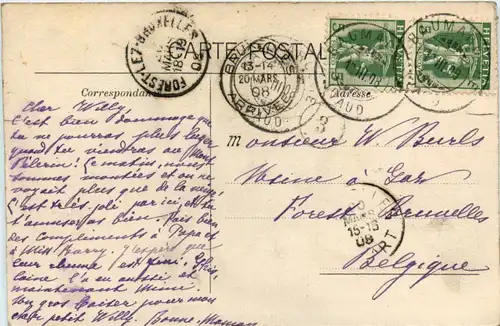 CARTE POSTALE
Correspondance
Adresse
FOREST-LEZ-BRUXELLES
18-19
MARS
08
BRUXELLES
13-14
20 MARS
08
ARRIVÉE
HELVETIA
HELVETIA
VAUD
VAUD
MARS
15-16
08
Cher Willy,
C'est bien dommage que
tu ne pourras plus loger
quand tu viendras au Mont
Pélerin! Ce matin, nous
sommes montées et on ne
voyait plus que de la neige!
C'est très joli par ici et tu
t'amuserais bien. Fais bien
des compliments à Papa et
à Miss Barry. J'espère que
leur rhume est fini,
l'a eu et
maintenant Mimi.
Un gros baiser pour mon
cher petit Willy. Bonne-Maman
Monsieur W. Burls
Usine à Gaz
Forest Bruxelles
Belgique